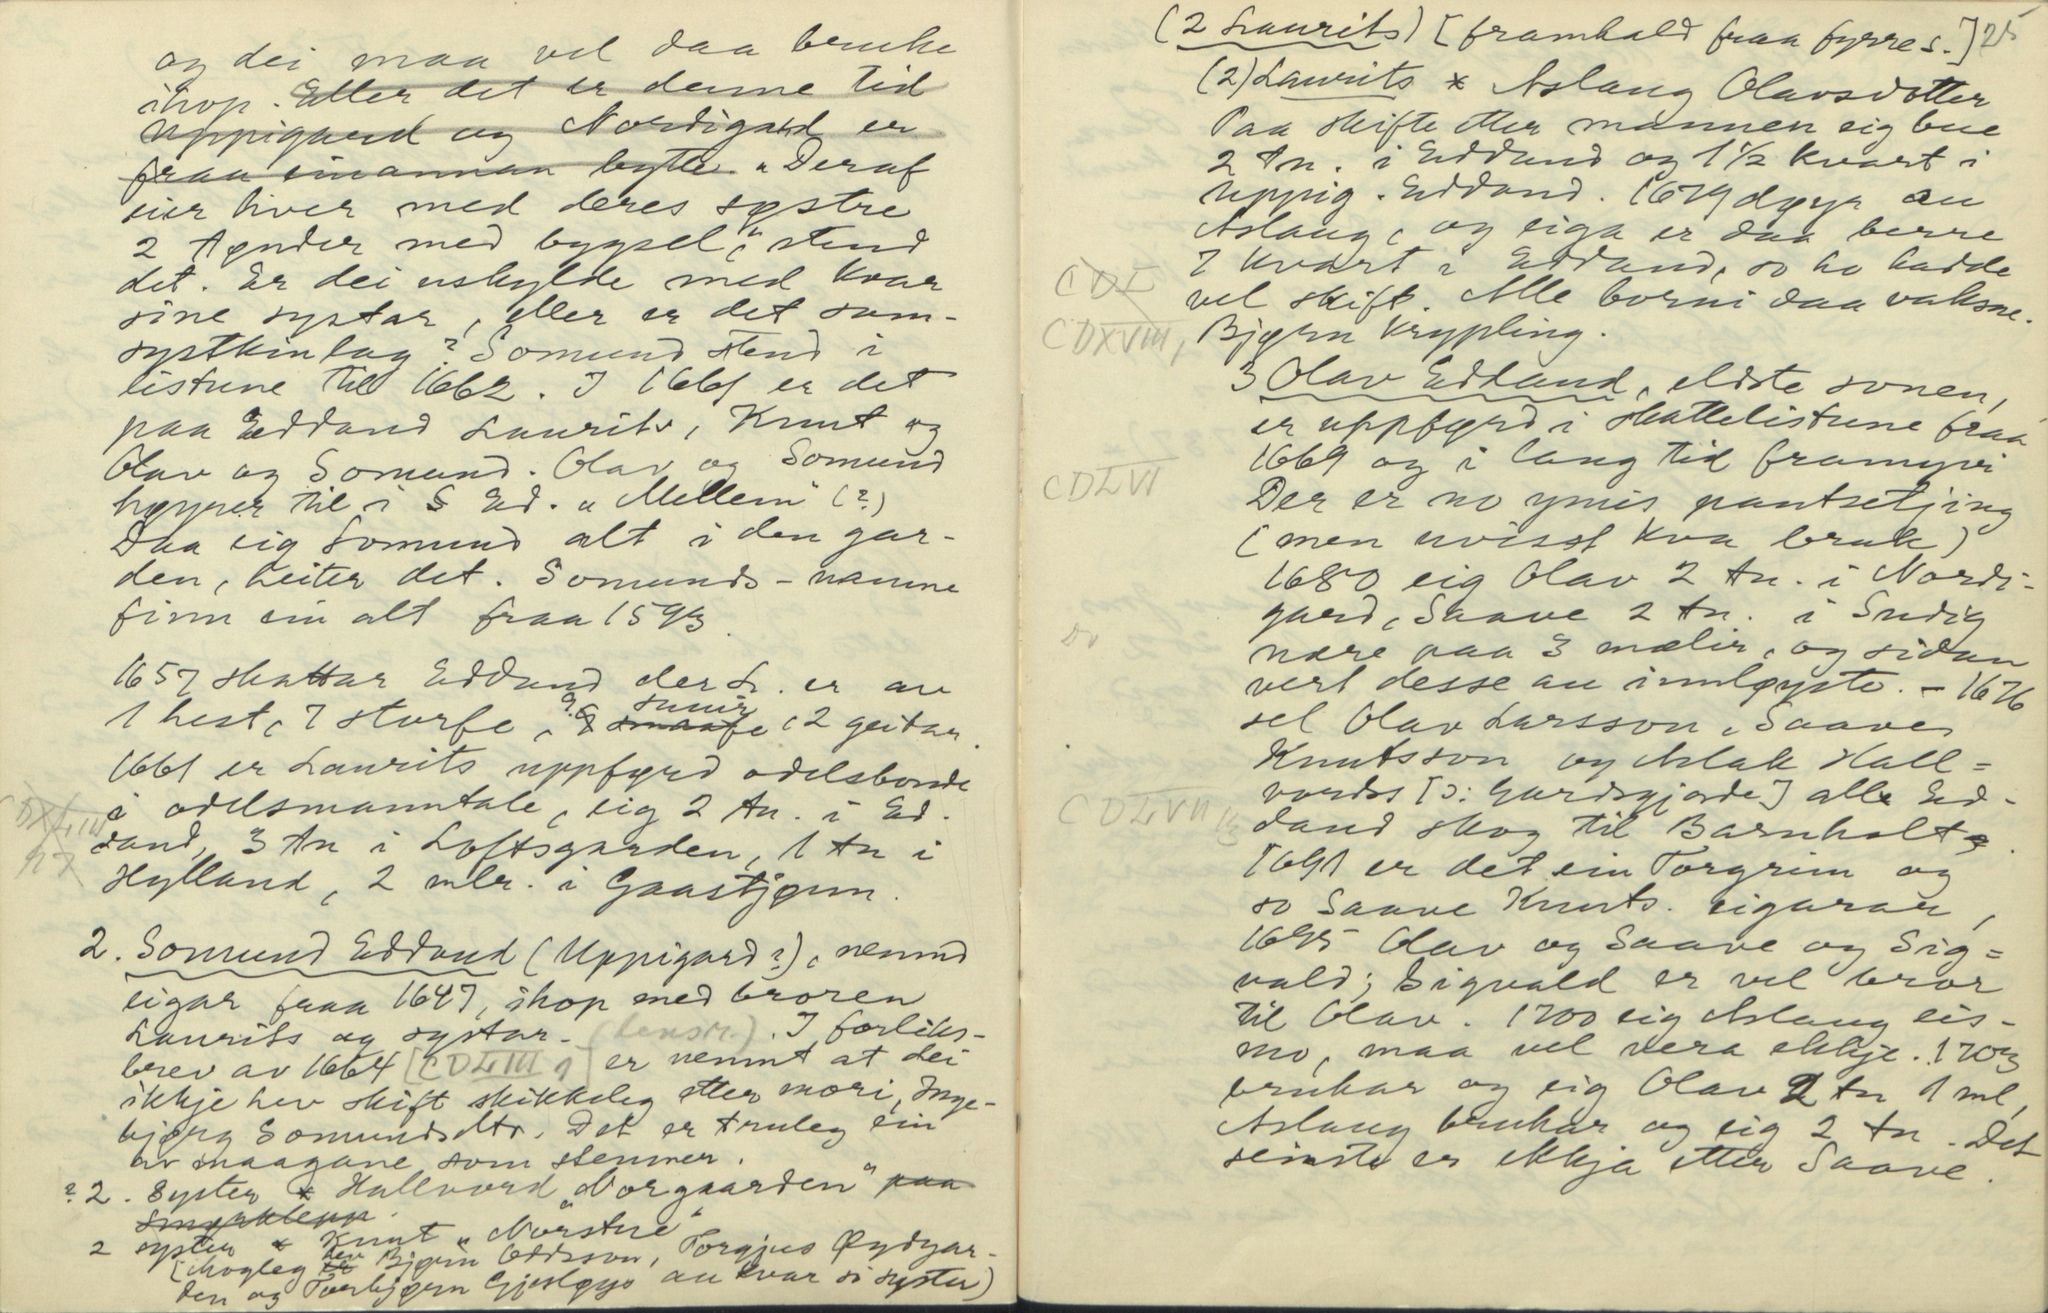 og dei maa vel daa bruke
ihop. Eller det er denne tid
Uppigard og Nordigard er
fraa einannan bytte. "Deraf
eier hver med deres søstre
2 tønder med bygsel", stend
det. Er dei uskylde med kvar
sine systar, eller er det sam-
systkinlag? Somund stend i
listune til 1662. I 1661 er det
paa Eddand Laurits, Knut og
Olav og Somund. Olav og Somund
høyrer til i S Ed. "Mellem" (?)
Daa eig Somund alt i den gar-
den, heiter det. Somunds-namne
finn ein alt fraa 1593.
1657 skattar Eddand der L. er av
1 hest, 7 storfe, 9 smaafe, 2 geitar.
sauir
1661 er Laurits uppførd odelsbonde
i odelsmanntale, eig 2 tn. i Ed-
dand, 3 tn i Loftsgarden, 1 tn i
Hylland, 2 mlr. i Gaastjønn.
2. Somund Eddand (Uppigard?), nemnd
eigar fraa 1647, ihop med broren
Laurits og systar. (lensm.). I forliks-
brev av 1664 [CDLIII 1] er nemnt at dei
ikkje hev skift skikkeleg etter mori, Inge-
bjørg Somundsdtr. Det er truleg ein
av maagane som stemner.
? 2. Syster * Hallvord "Norgaarden" paa
Smørklepp.
2 syster * Knut "Nørstue"
(Mogleg hev Bjørn Oddsson, Torgjus Øydgar-
den og Torbjørn Gjesløys au kvar si syster)
(2 Laurits) [framhald fraa fyrre s.] 25
(2) Laurits * Aslaug Olavsdotter
Paa skifte etter mannen eig bue
2 tn. i Eddand og 1 1/2 kvart i
Uppig. Eddand. 1679 døyr au
Aslaug, og eiga er daa berre
7 kvart i Eddand, so ho hadde
CDL
vel skift. Alle borni daa vaksne.
CDXVIII, Bjørn krypling.
3 Olav Eddand, eldste sonen,
er uppførd i skattelistune fraa
1669 og i lang tid framyvi
CDLVI
Der er no ymis pantsetjing
(men uvisst kva bruk)
1680 eig Olav 2 tn. i Nordi-
gard, Saave 2 tn. i Sudig
nære paa 3 mælir, og sidan
vert desse au innløyste. - 1676
sel Olav Larsson, Saave
Knutsson og Aslak Hall-
vordss [ɔ: Gardsgjorde] alle Ed-
CDLVII
dand skog til Barnholt.
1691 er det ein Torgrim og
so Saave Knuts. eigarar,
1695 Olav og Saave og Sig-
vald; Sigvald er vel bror
til Olav. 1700 eig Aslaug eis-
mo, maa vel vera ekkje. 1703
brukar og eig Olav 2 tn 1 ml,
Aslaug brukar og eig 2 tn. Det
seinste er ekkja etter Saave.